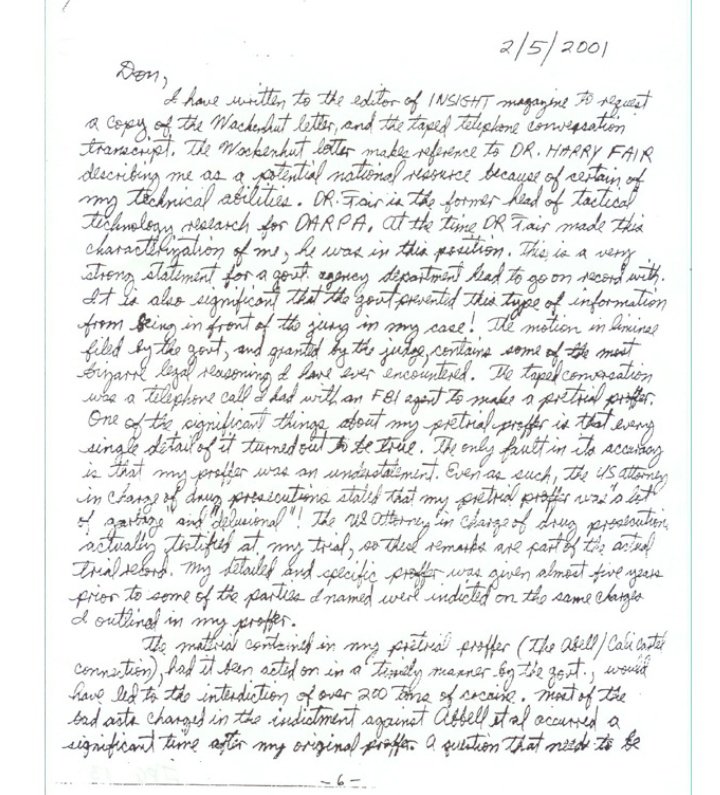 2/5/2001
Don,
I have written to the editor of INSIGHT magazine to request
a copy of the Wackenhut letter, and the taped telephone conversation
transcript. The Wackenhut letter makes reference to DR. HARRY FAIR
describing me as a potential national resource because of certain of
my technical abilities. DR. Fair is the former head of tactical
technology research for DARPA. At the time DR Fair made this
characterization of me, he was in this position. This is a very
strong statement for a govt. agency department head to go on record with.
It is also significant that the govt prevented this type of information
from being in front of the jury in my case! The motion in liminae
filed by the govt, and granted by the judge, contains some of the most
bizarre legal reasoning I have ever encountered. The taped conversation
was a telephone call I had with an FBI agent to make a pretrial proffer.
One of the significant things about my pretrial proffer is that every
single detail of it turned out to be true. The only fault in its accuracy
is that my proffer was an understatement. Even as such, the US Attorney
in charge of drug prosecutions stated that my pretrial proffer was "a lot
of garbage and "delusional"! The US Attorney in charge of drug prosecutions
actually testified at my trial, so these remarks are part of the actual
trial record. My detailed and specific proffer was given almost five years
prior to some of the parties I named were indicted on the same charges
I outlined in my proffer.
The material contained in my pretrial proffer (The Abell/Cali Cartel
connection), had it been acted on in a timely manner by the govt., would
have led to the interdiction of over 200 tons of cocaine. Most of the
bad acts charged in the indictment against Abbell et al occurred a
significant time after my original proffer. A question that needs to be
-6-